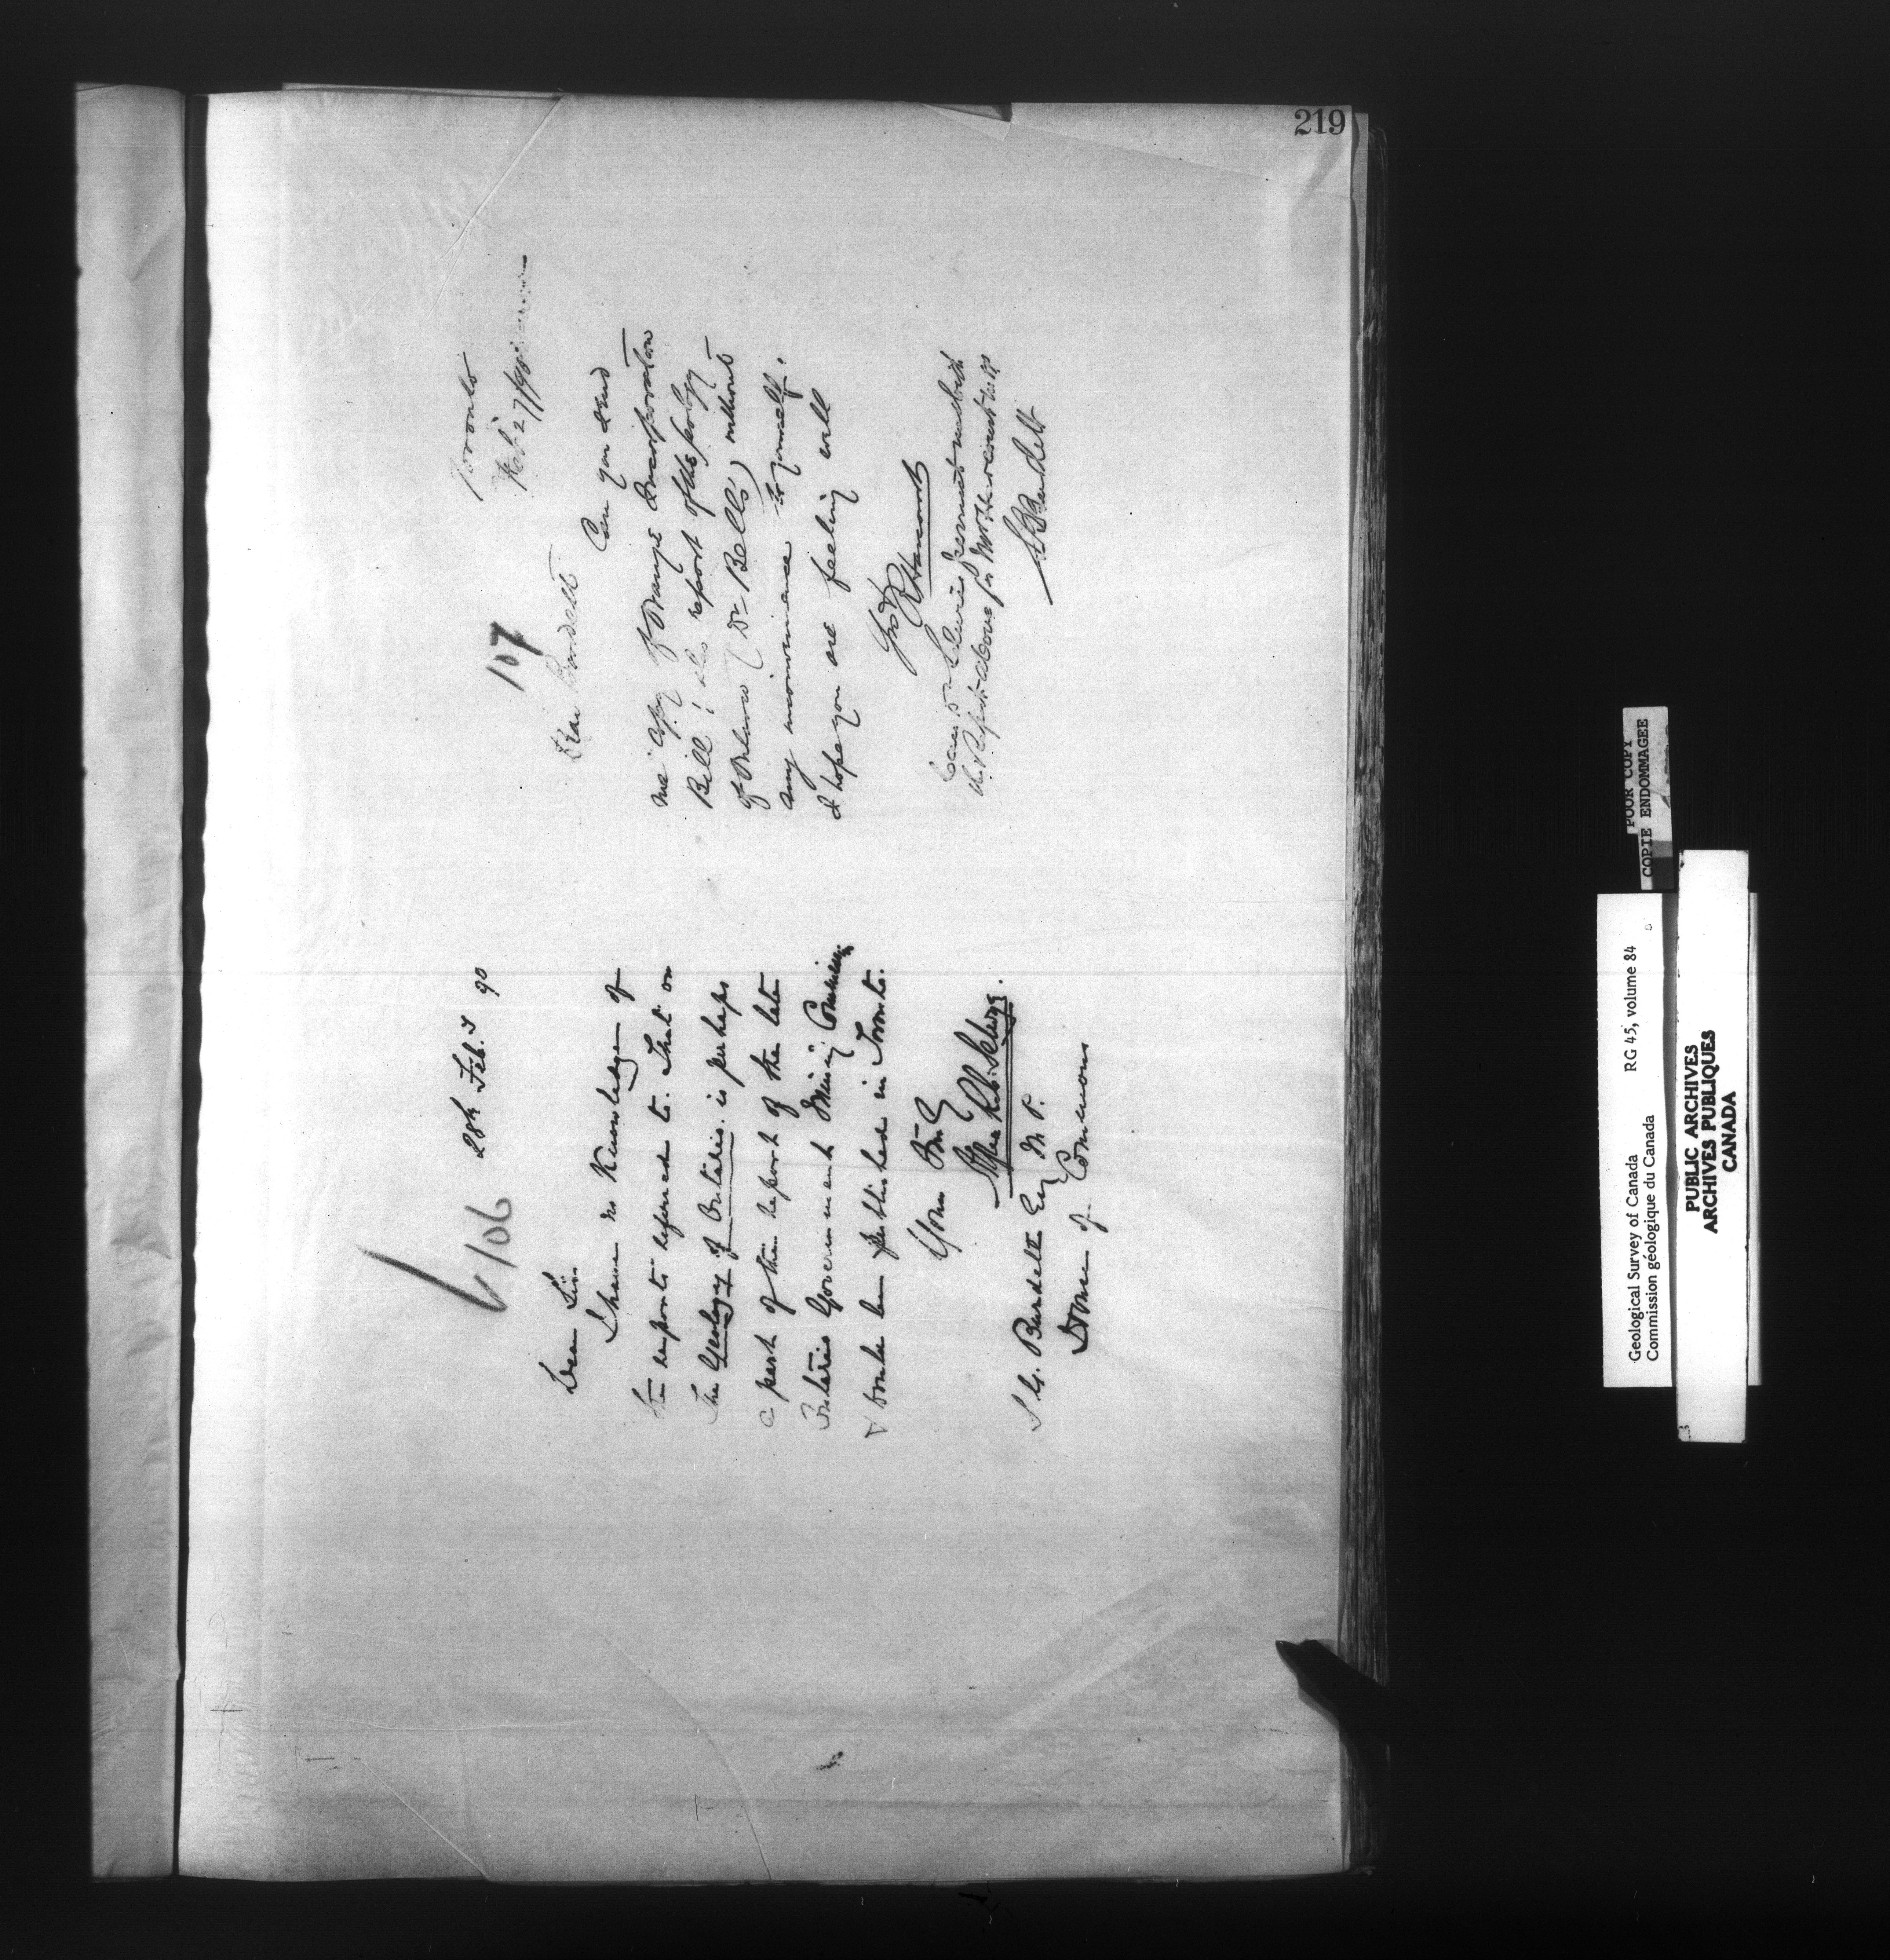 219
106
28th Feby 90
Dear Sir
I have no Knowledge of
the reports referred to. That on
the Geology of Ontario is perhaps
a part of the report of the late
Ontario Government Mining Commission
& to be published in Toronto.
Yours truly
Alfred R. C. Selwyn.
S. B. Burdett Esq M.P.
House of Commons
107
Toronto
Feb 27/90
Dear Burdett
Can you send
me copy of Orange Incorporation
Bill; also report of the geology
of Ontario (Dr Bell's) without
any inconvenience to yourself.
I hope you are feeling well
furnish me with
the Reports above for
S B Burdett
POOR COPY
COPIE ENDOMMAGEE
Geological Survey of Canada RG 45, volume 84
Commission géologique du Canada
PUBLIC ARCHIVES
ARCHIVES PUBLIQUES
CANADA